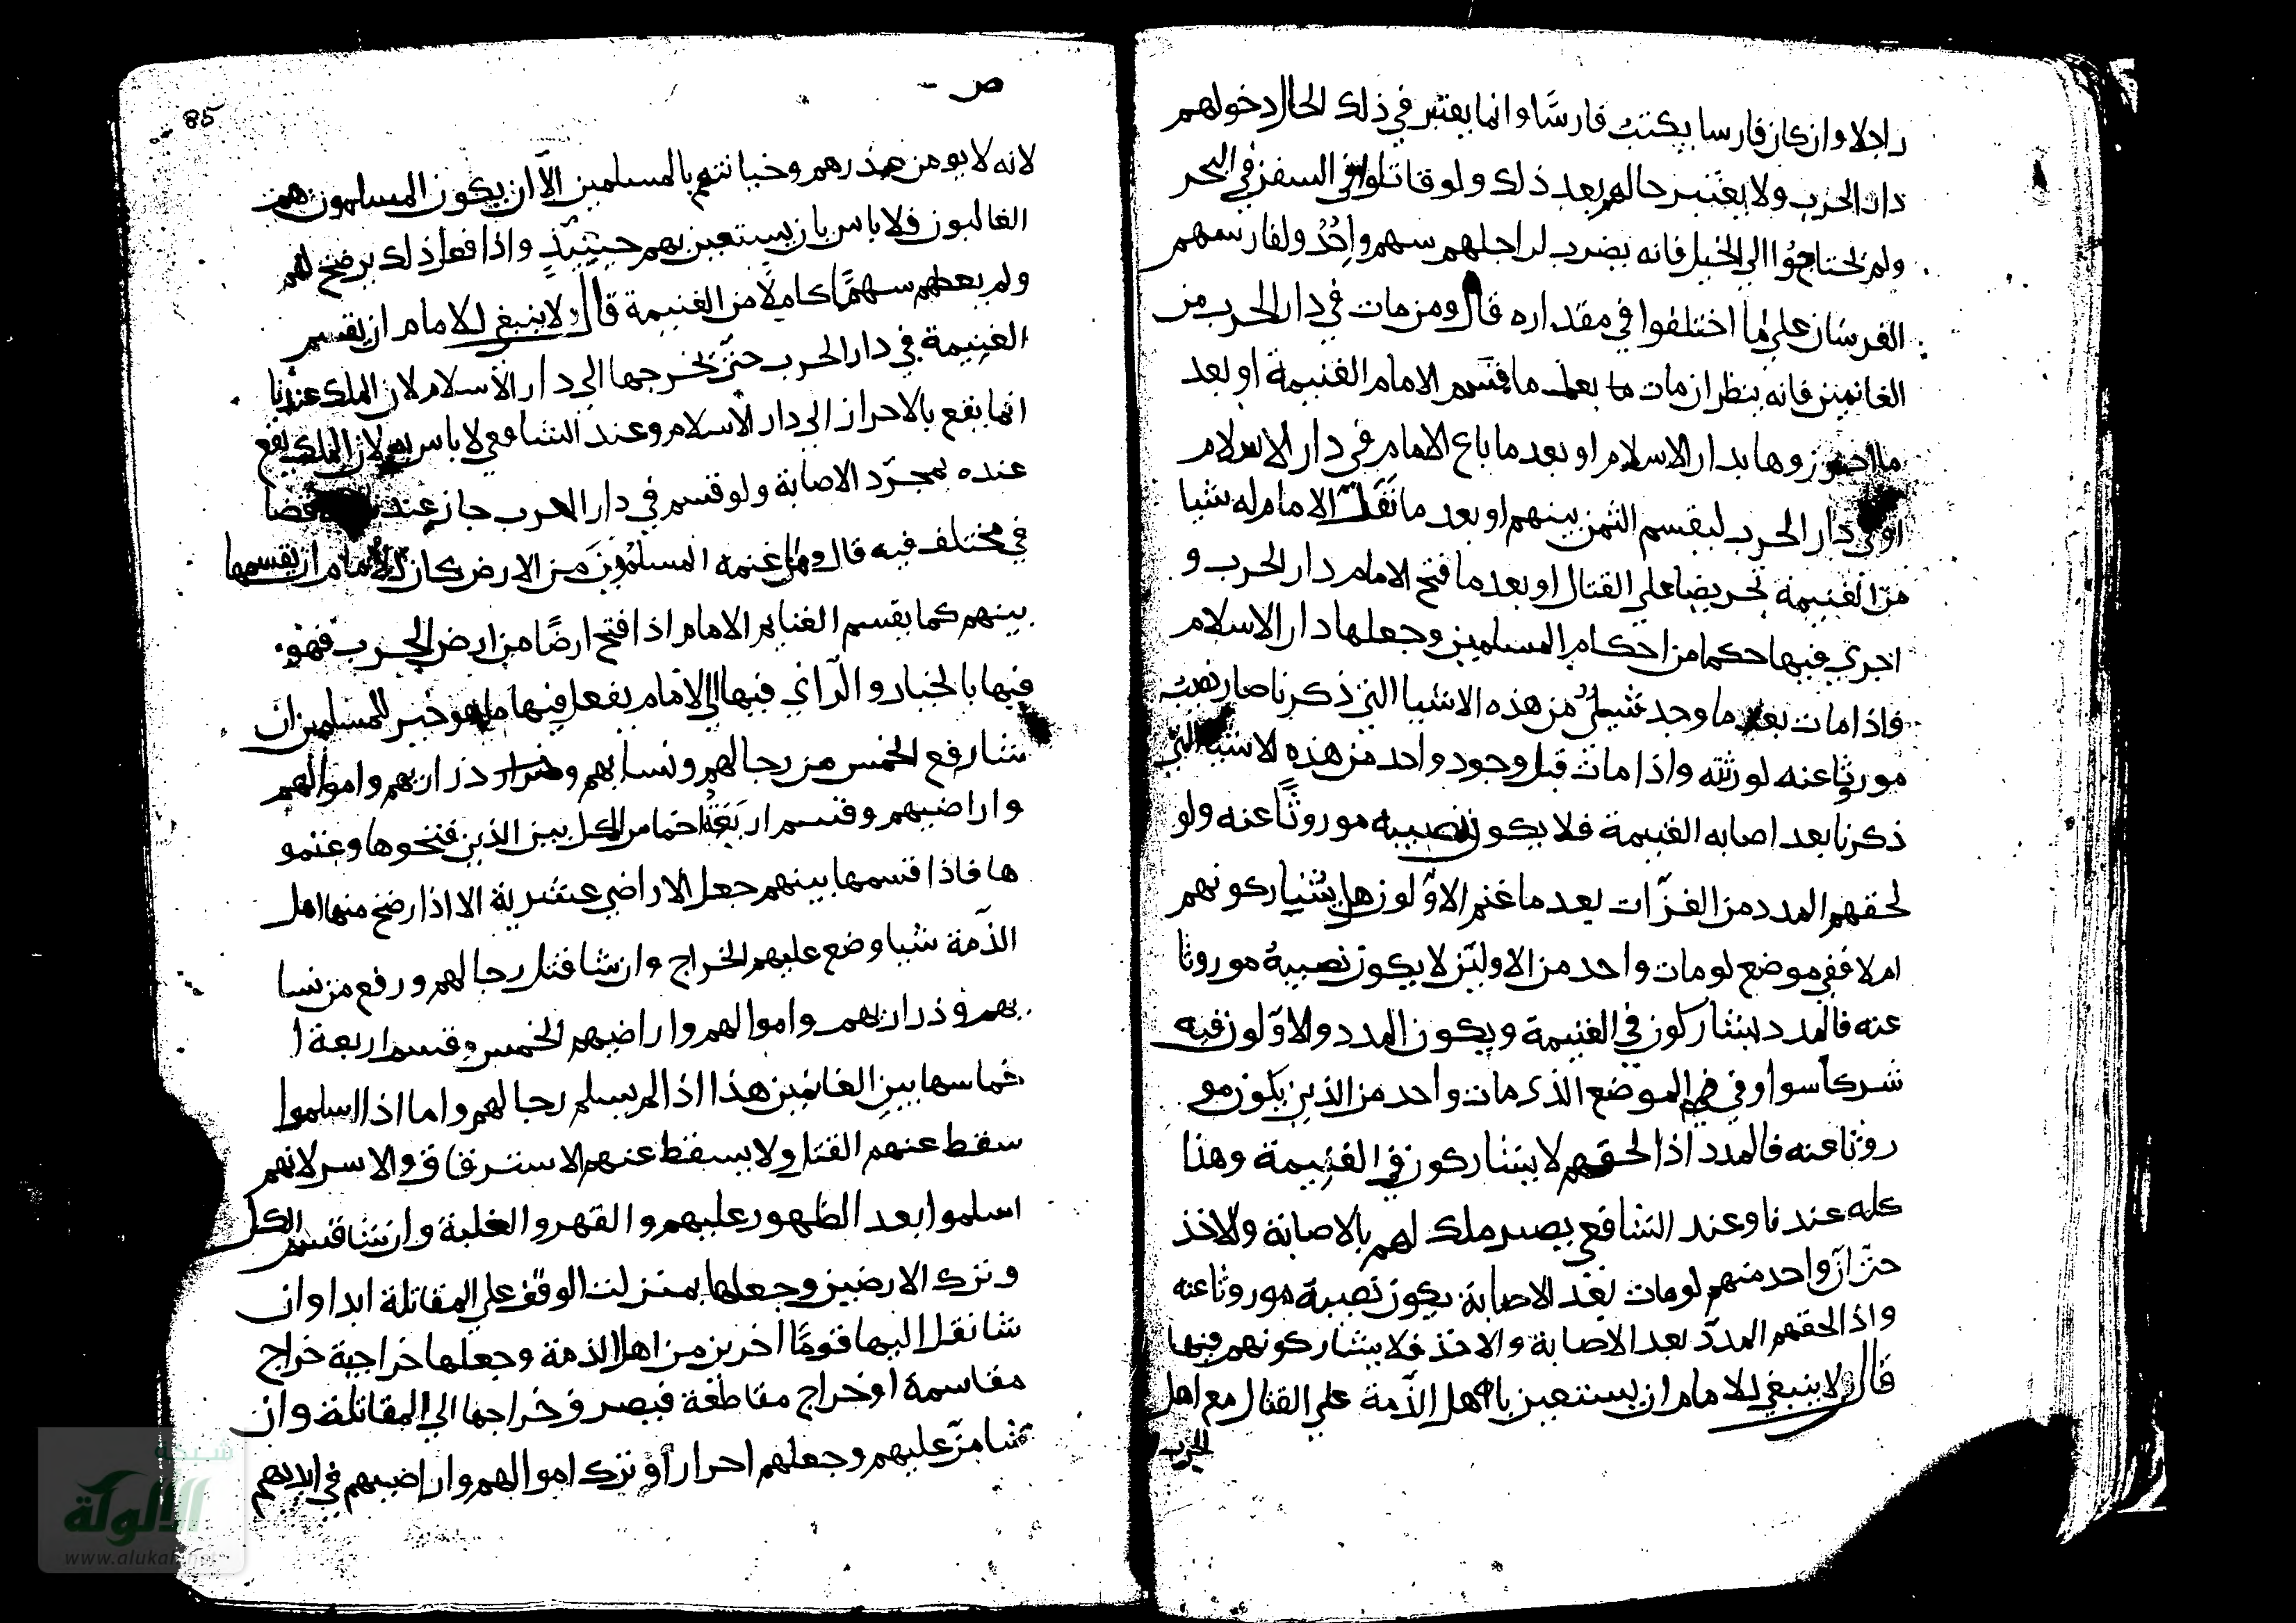 راجلا وان كان فارسا يكتب فارسًا وانما يعتبر في ذلك الحال دخولهم
دار الحرب ولا يعتبر حالهم بعد ذلك ولو قاتلوا في السفن في البحر
ولم يحتاجوا الي الخيل فانه يضرب لراجلهم سهم واحد ولفارسهم سهم
الفرسان علي ما اختلفوا في مقداره قال ومن مات في دار الحرب من
الغانمين فانه ينظر ان مات بعد ما قسم الامام الغنيمة او بعد
ما احرزوها بدار الاسلام او بعد ما باع الامام في دار الاسلام
او في دار الحرب ليقسم الثمن بينهم او بعد ما نَفَّل الامام له شيا
من الغنيمة تحريضا علي القتال او بعد ما فتح الامام دار الحرب و
اجري فيها حكما من احكام المسلمين وجعلها دار الاسلام
فاذا مات بعد ما وجد شيئ من هذه الاشيا التي ذكرنا صار نصيبه
موروثا عنه لورثته واذا مات قبل وجود واحد من هذه الاشيا التي
ذكرنا بعد اصابه الغنيمة فلا يكون نصيبه موروثًا عنه ولو
لحقهم المدد من الغزّات بعد ما غنم الاوّلون هل يشاركونهم
ام لا ففي موضع لو مات واحد من الاولين لا يكون نصيبه موروثا
عنه فالمدد يشاركون في الغنيمة ويكون المدد والاوّلون فيه
شركا سوا وفي الموضع الذي مات واحد من الذين يكون مو
روثا عنه فالمدد اذا لحقهم لا يشاركون في الغنيمة وهذا
كله عندنا وعند الشافعي يصير ملك لهم بالاصابة والاخذ
حتي ان واحد منهم لو مات بعد الاصابة يكون نصيبه موروثا عنه
واذا لحقهم المدد بعد الاصابة والاخذ فلا يشاركونهم فيها
قال ولا ينبغي للامام ان يستعين باهل الذّمة علي القتال مع اهل
الحرب
ص
85
لانه لا يومن غدرهم وخيانتهم بالمسلمين الّا ان يكون المسلمون هم
الغالبون فلا باس بان يستعين بهم حينئيذٍ واذا فعل ذلك يرضخ لهم
ولم يعطهم سهمًا كاملًا من الغنيمة قال ولا ينبغي للامام ان يقسم
الغنيمة في دار الحرب حتّي يخرجها الي دار الاسلام لان الملك عندنا
انما يقع بالاحراز الي دار الاسلام وعند الشافعي لا باس به لان الملك يقع
عنده بمجرّد الاصابة ولو قسم في دار الحرب جاز عند قضا
في مختلف فيه قال وما غنمه المسلمون من الارض كان للامام ان يقسمها
بينهم كما يقسم الغنايم الامام اذا افتح ارضًا من ارض الحرب فهو
فيها بالخيار والرأي فيها الي الامام يفعل فيها ما هو خير للمسلمين ان
شا رفع الخمس من رجالهم ونسايهم وذراريهم واموالهم
واراضيهم وقسم اربعة اخماس الكل بين الذين فتحوها وغنمو
ها فاذا قسمها بينهم جعل الاراضي عشرية الا اذا رضخ منها اهل
الذّمة شيا وضع عليهم الخراج وان شا قتل رجالهم ورفع من نسا
يهم وذراريهم واموالهم واراضيهم الخمس وقسم اربعة ا
خماسها بين الغانمين هذا اذا لم يسلم رجالهم واما اذا اسلموا
سقط عنهم القتل ولا يسقط عنهم الاسترقاق والاسر لانهم
اسلموا بعد الظهور عليهم والقهر والغلبة وان شا قسم الكل
وترك الارضين وجعلها بمنزلت الوقف علي المقاتلة ابدا وان
شا نقل اليها قومًا اخرين من اهل الذمة وجعلها خراجية خراج
مقاسمة او خراج مقاطعة فيصرف خراجها الي المقاتلة وان
شا منّ عليهم وجعلهم احرارا وترك اموالهم واراضيهم في ايديهم
شبكة
الألوكة
www.alukah.net